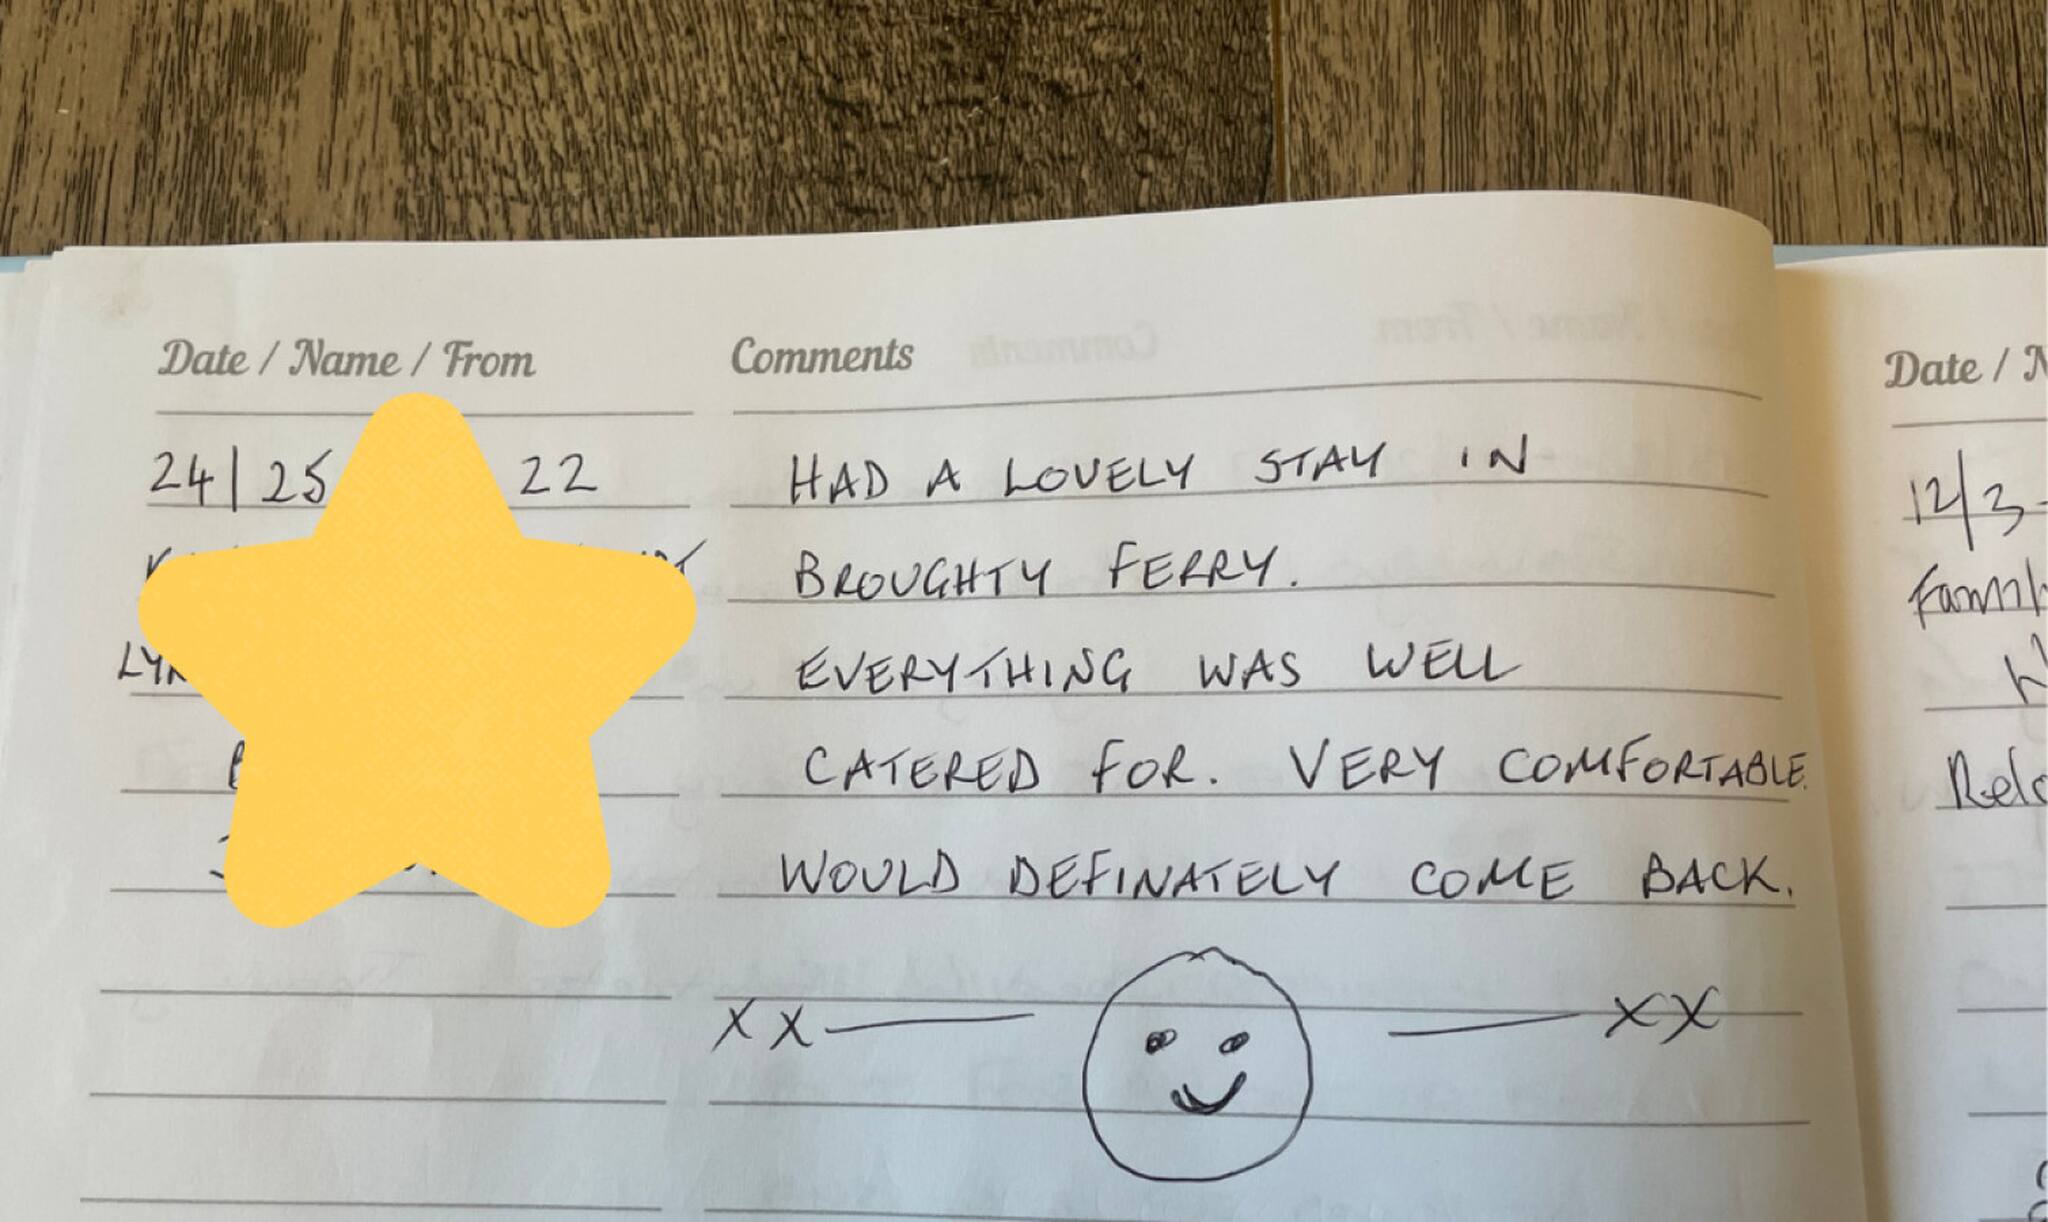 Date / Name / From
Comments
24/25 22
HAD A LOVELY STAY IN
BROUGHTY FERRY.
EVERYTHING WAS WELL
CATERED FOR. VERY COMFORTABLE.
WOULD DEFINATELY COME BACK.
XX XX
Date /
12/3-